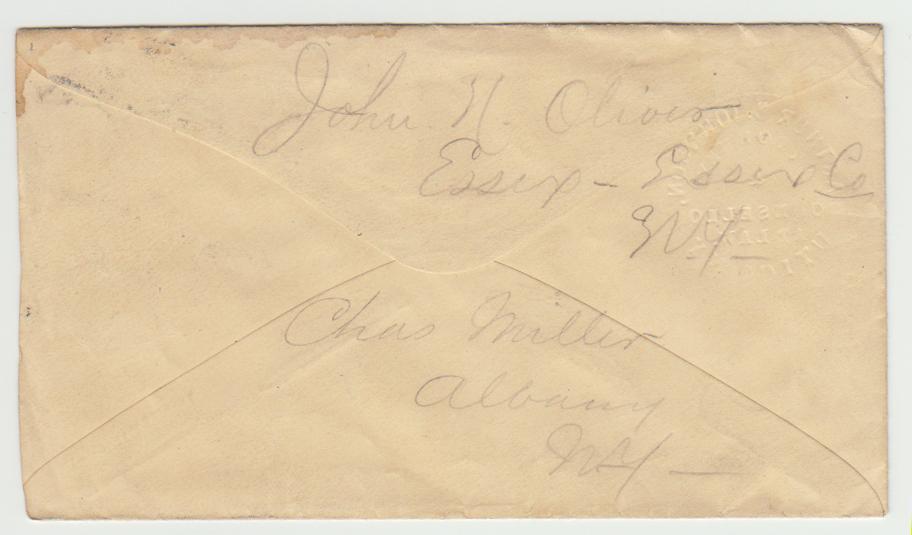 John N. Oliver
Essex - Essex Co
NY-
Chas Miller
Albany
NY-